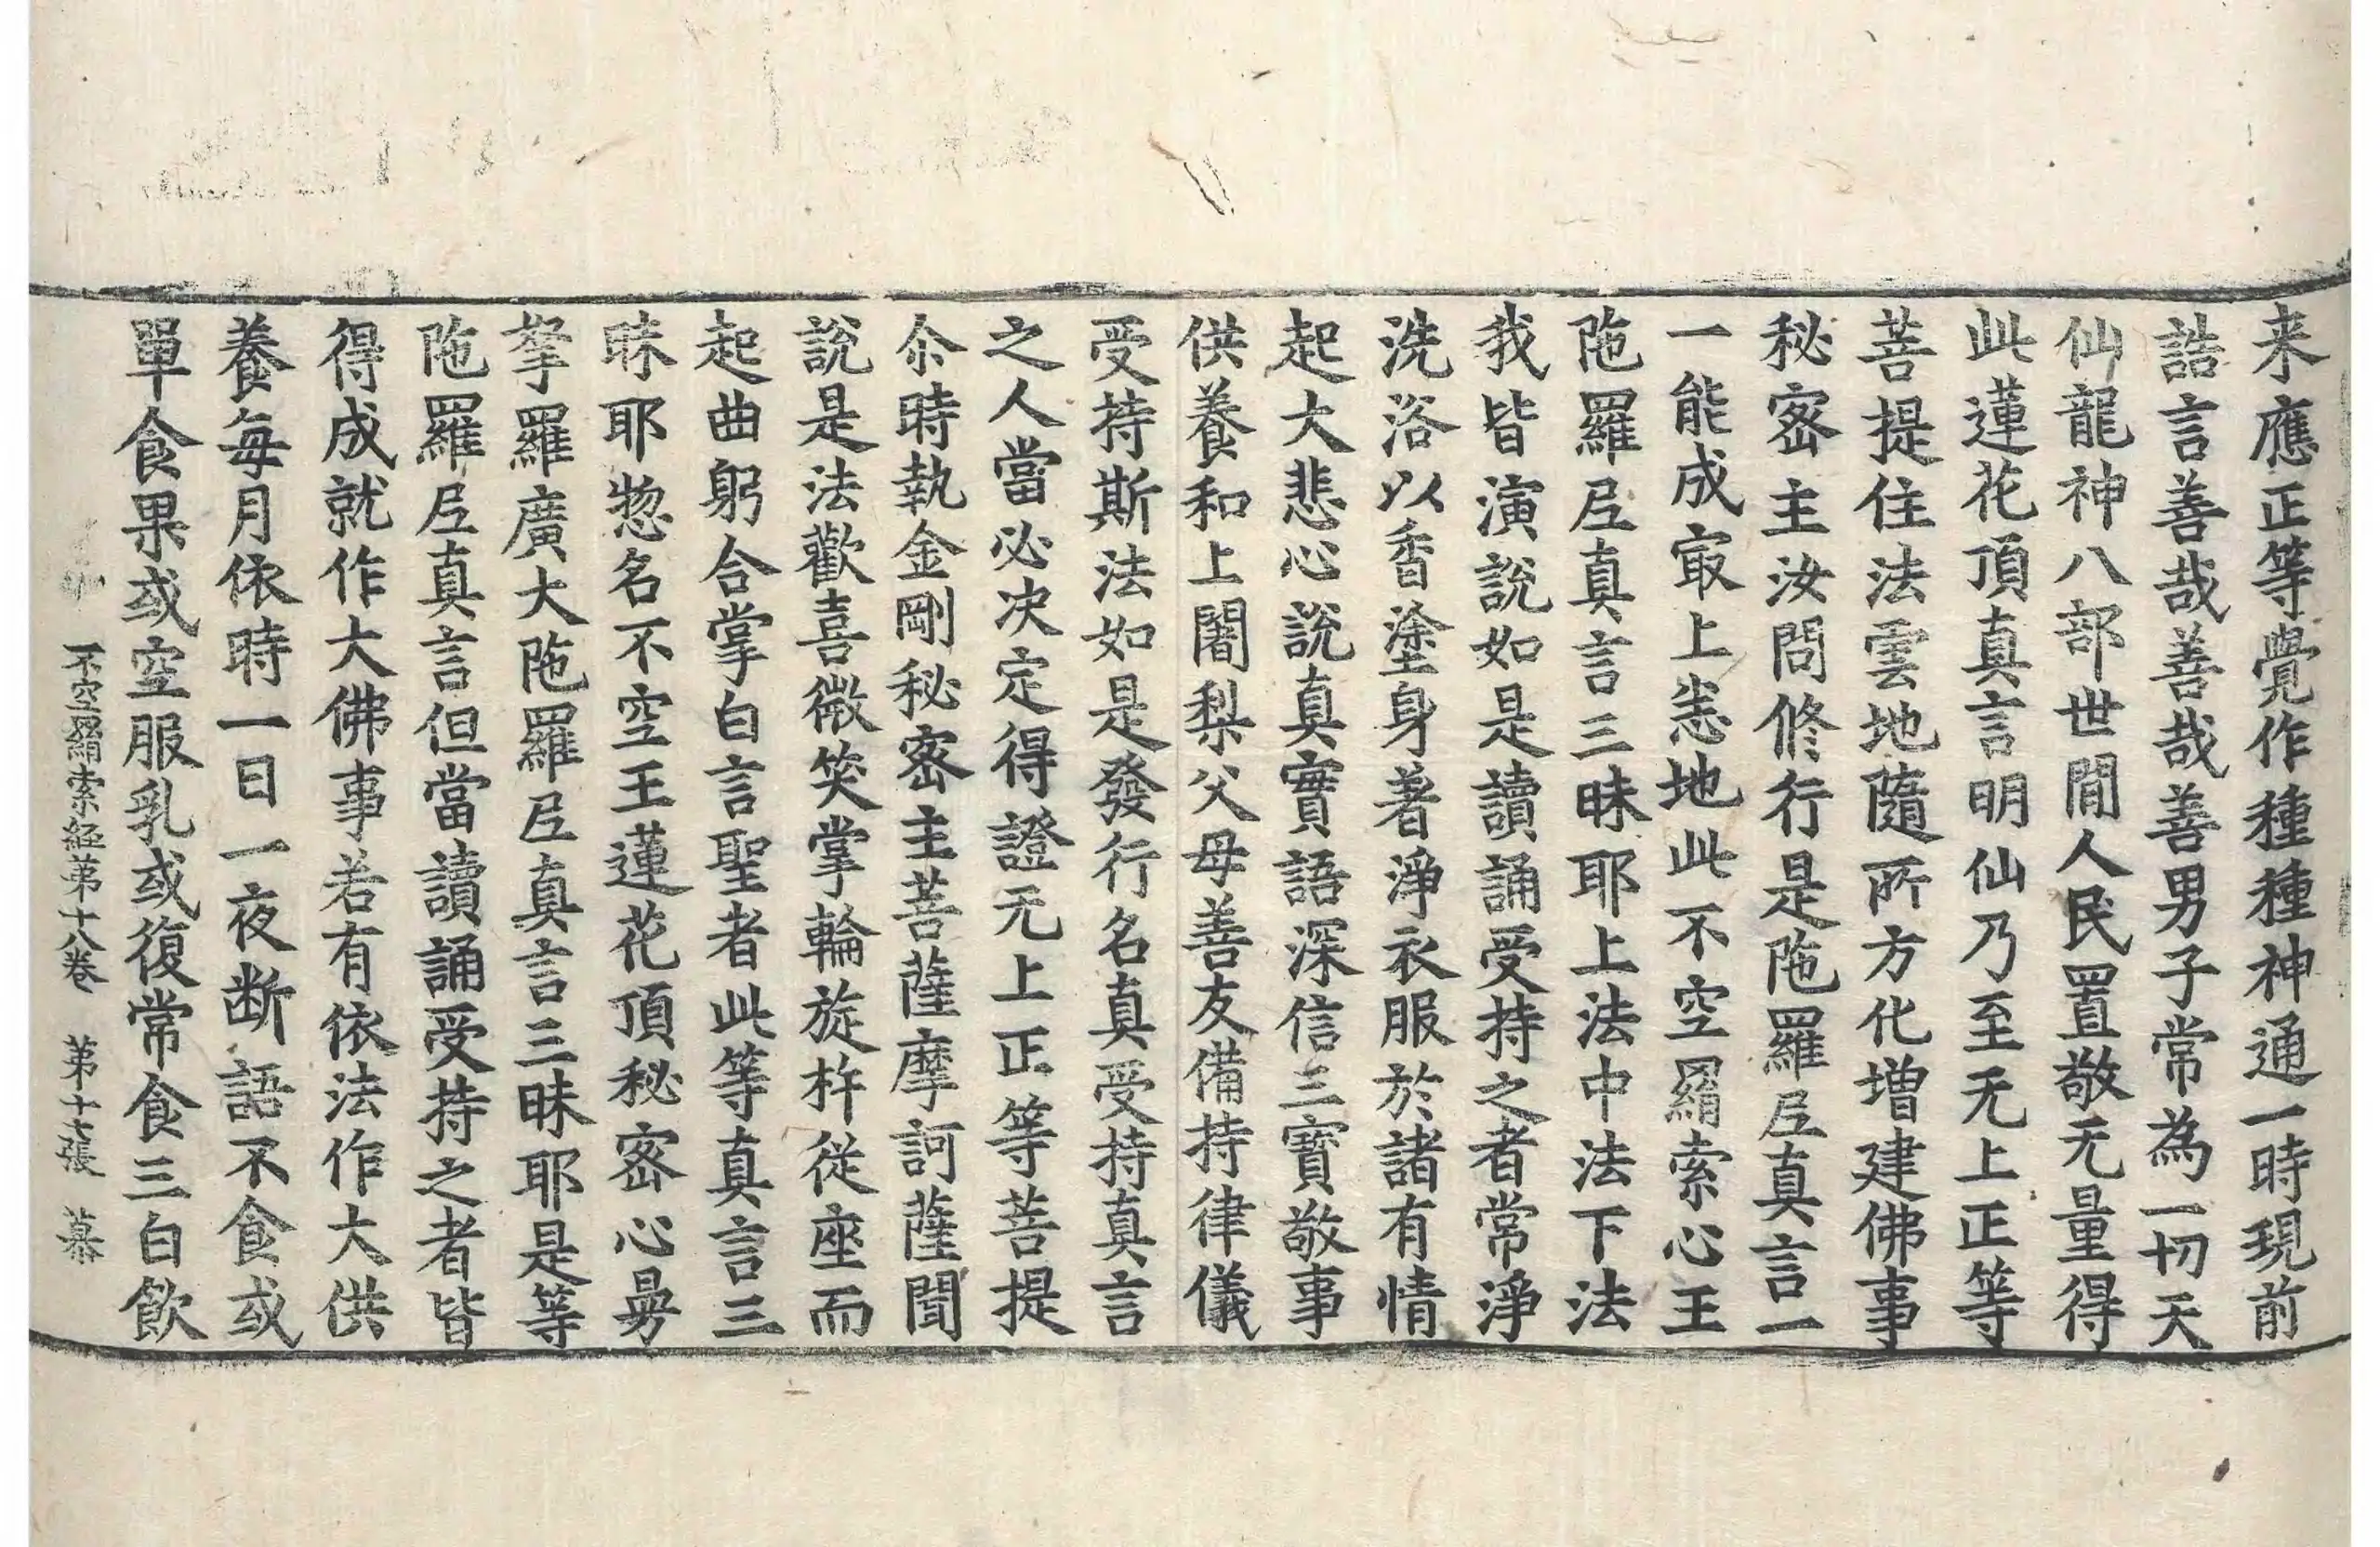 来應正等覺作種種神通一時現前
誥言善哉善哉善男子常為一切天
仙龍神八部世間人民置敬无量得
此蓮花頂真言明仙乃至无上正等
菩提住法雲地隨所方化增建佛事
秘密主汝問修行是陁羅尼真言一
一能成寂上悉地此不空羂索心王
陁羅尼真言三昧耶上法中法下法
我皆演說如是讀誦受持之者常淨
洗浴以香塗身著淨衣服於諸有情
起大悲心說真實語深信三寶敬事
供養和上闍梨父母善友備持律儀
受持斯法如是發行名真受持真言
之人當必決定得證无上正等菩提
尒時執金剛秘密主菩薩摩訶薩聞
說是法歡喜微笑掌輪旋杵從座而
起曲躬合掌白言聖者此等真言三
昧耶惣名不空王蓮花頂秘密心曼
拏羅廣大陁羅尼真言三昧耶是等
陁羅尼真言但當讀誦受持之者皆
得成就作大佛事若有依法作大供
養每月依時一日一夜断語不食或
單食果或空服乳或復常食三白飲
不空羂索經第十八卷 第十七張 慕